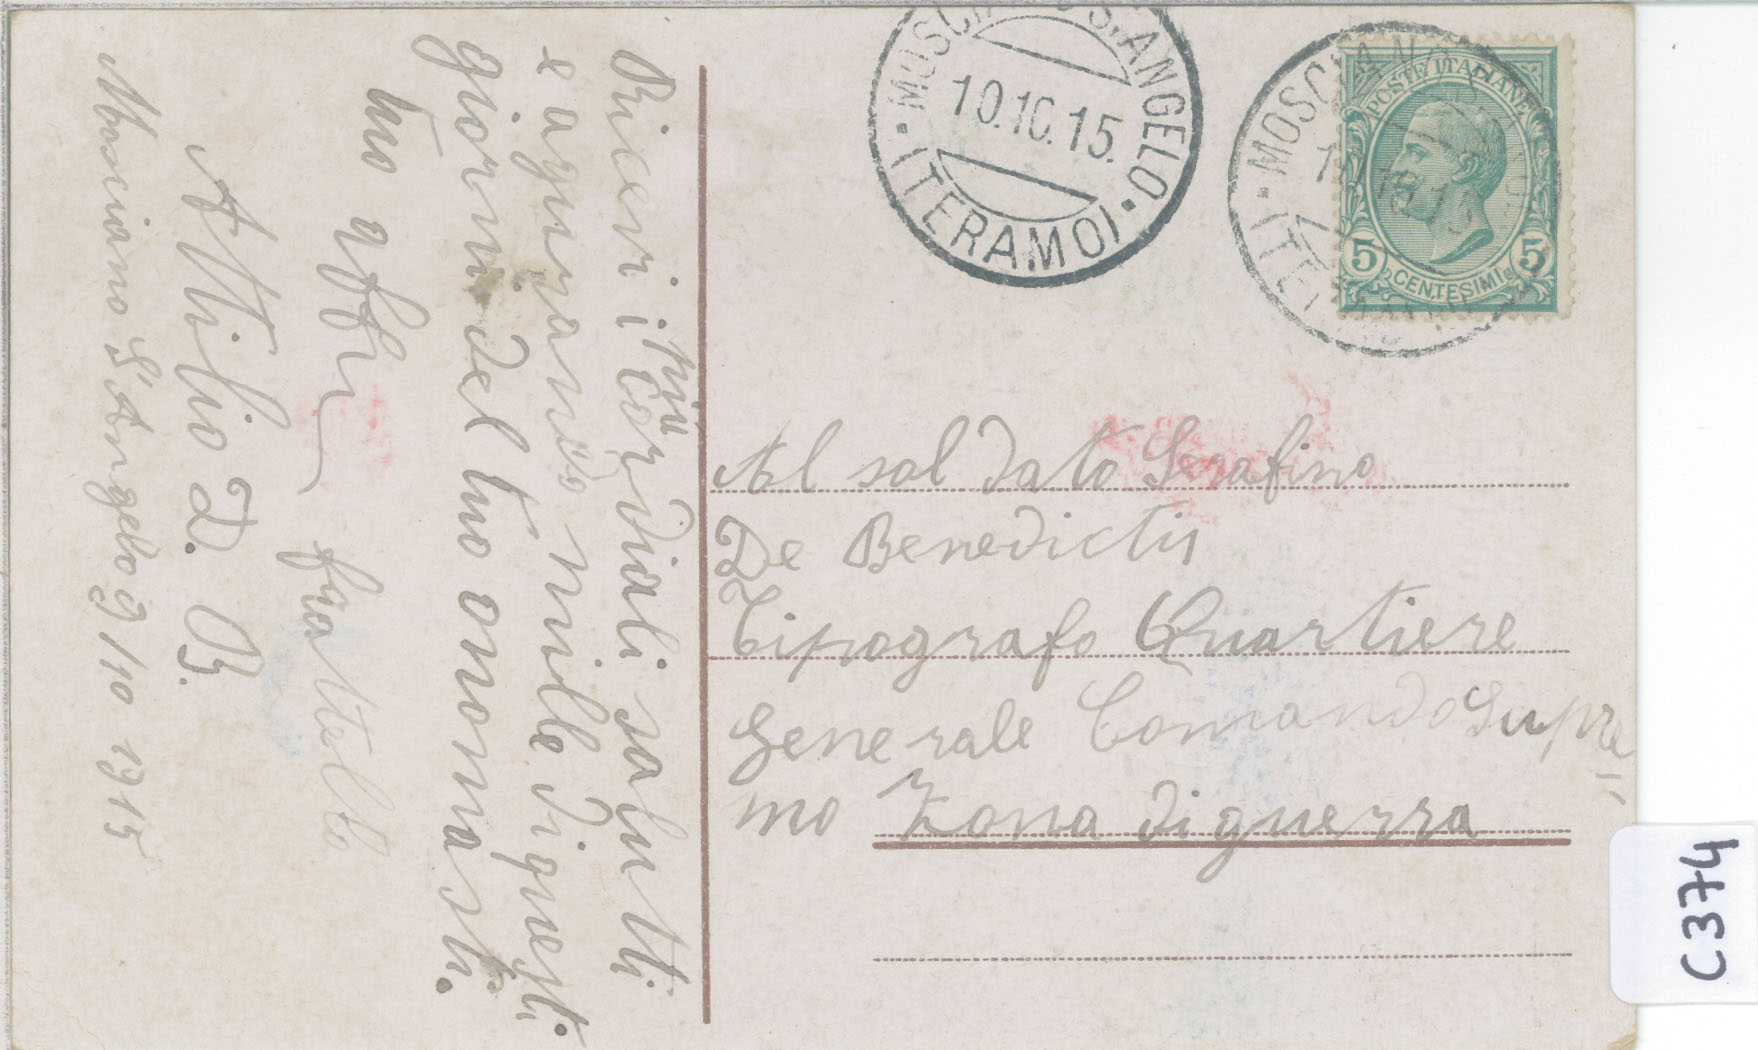 Ricevi i più cordiali saluti
e agurandoo mille di questi
giorni del tuo onomasti.
tuo affṃ fratello
Attilio D. B.
Mosciano S'Angelo 9/10 1915
MOSCIANO S. ANGELO
10.10.15.
(TERAMO)
MOSCIANO
POSTE ITALIANE
5 CENTESIMI 5
Al soldato Serafino
De Benedictis
Tipografo Quartiere
Generale Comando Supre
mo Zona di guerra
C374